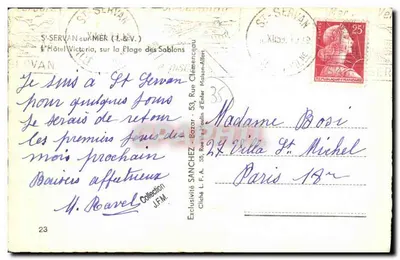 S-SERVAN-sur-MER (I.-&-V.)
L'Hôtel Victoria, sur la Plage des Sablons
Je suis à St Servan
pour quelques jours
Je serais de retour
les premiers jours du
mois prochain
Baisers affectueux
M. Ravel
Collection
J.F.M.
23
Exclusivité SANCHEZ - Bazar - 53, Rue Clémenceau
ST-SERVAN
ST-SERVAN
25F
35
Madame Bosi
27 Villa St Michel
Paris 18e